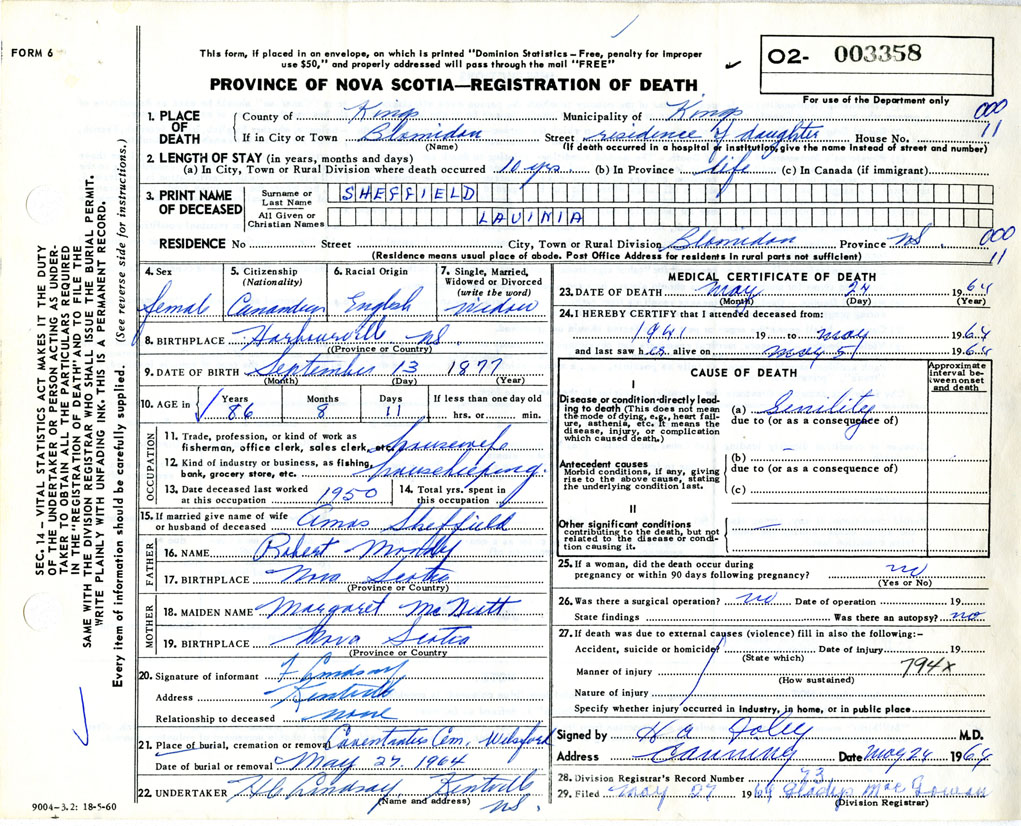 FORM 6
This form, if placed in an envelope, on which is printed "Dominion Statistics – Free, penalty for improper
use $50," and properly addressed will pass through the mail "FREE"
O2- 003358
PROVINCE OF NOVA SCOTIA—REGISTRATION OF DEATH
For use of the Department only
000
11
1. PLACE OF DEATH
County of Kings Municipality of Kings
If in City or Town Blomidon Street residence of daughter House No.
(Name) (If death occurred in a hospital or institution, give the name instead of street and number)
2. LENGTH OF STAY (in years, months and days)
(a) In City, Town or Rural Division where death occurred 10 yrs. (b) In Province life (c) In Canada (if immigrant)
3. PRINT NAME OF DECEASED
Surname or Last Name SHEFFIELD
All Given or Christian Names LAVINIA
RESIDENCE No Street City, Town or Rural Division Blomidon Province NS.
000
11
(Residence means usual place of abode. Post Office Address for residents in rural parts not sufficient)
4. Sex
femal
5. Citizenship (Nationality)
Canandien
6. Racial Origin
English
7. Single, Married, Widowed or Divorced (write the word)
widow
8. BIRTHPLACE Harbourville NS.
(Province or Country)
9. DATE OF BIRTH September 13 1877
(Month) (Day) (Year)
10. AGE in Years 86 Months 8 Days 11 If less than one day old hrs. or min.
OCCUPATION
11. Trade, profession, or kind of work as
fisherman, office clerk, sales clerk, etc. housewife
12. Kind of industry or business, as fishing,
bank, grocery store, etc. housekieping.
13. Date deceased last worked at this occupation 1950
14. Total yrs. spent in this occupation
15. If married give name of wife or husband of deceased Amos Sheffield
FATHER
16. NAME Robert Moody
17. BIRTHPLACE Nova Scotia
(Province or Country)
MOTHER
18. MAIDEN NAME Margaret McNutt
19. BIRTHPLACE Nova Scotia
(Province or Country
20. Signature of informant F Lindsay
Address Kentville
Relationship to deceased none
21. Place of burial, cremation or removal Cem,
Date of burial or removal May 27, 1964
22. UNDERTAKER H C Lindsay Kentville
NS.
(Name and address)
9004-3.2: 18-5-60
MEDICAL CERTIFICATE OF DEATH
23. DATE OF DEATH May 24 1964
(Month) (Day) (Year)
24. I HEREBY CERTIFY that I attended deceased from:
1941 19 to May 1964
and last saw her alive on May 5 1964
CAUSE OF DEATH
Approximate interval between onset and death
I
Disease or condition directly leading to death (This does not mean the mode of dying, e.g., heart failure, asthenia, etc. It means the disease, injury, or complication which caused death.)
(a) Senility
due to (or as a consequence of)
Antecedent causes
Morbid conditions, if any, giving rise to the above cause, stating the underlying condition last.
(b) –
due to (or as a consequence of)
(c)
II
Other significant conditions
contributing to the death, but not related to the disease or condition causing it. —
25. If a woman, did the death occur during
pregnancy or within 90 days following pregnancy? no
(Yes or No)
26. Was there a surgical operation? no Date of operation 19
State findings Was there an autopsy? no
27. If death was due to external causes (violence) fill in also the following:–
Accident, suicide or homicide Date of injury 19
(State which)
Manner of injury 794x
(How sustained)
Nature of injury
Specify whether injury occurred in industry, in home, or in public place
Signed by H A Foley M.D.
Address Canning Date May 24 1964
28. Division Registrar's Record Number 73
29. Filed May 27 1964 Gladys MacGowan
(Division Registrar)
SEC. 14 – VITAL STATISTICS ACT MAKES IT THE DUTY
OF THE UNDERTAKER OR PERSON ACTING AS UNDER-
TAKER TO OBTAIN ALL THE PARTICULARS REQUIRED
IN THE "REGISTRATION OF DEATH" AND TO FILE THE
SAME WITH THE DIVISION REGISTRAR WHO SHALL ISSUE THE BURIAL PERMIT.
WRITE PLAINLY WITH UNFADING INK. THIS IS A PERMANENT RECORD.
Every item of information should be carefully supplied. (See reverse side for instructions.)